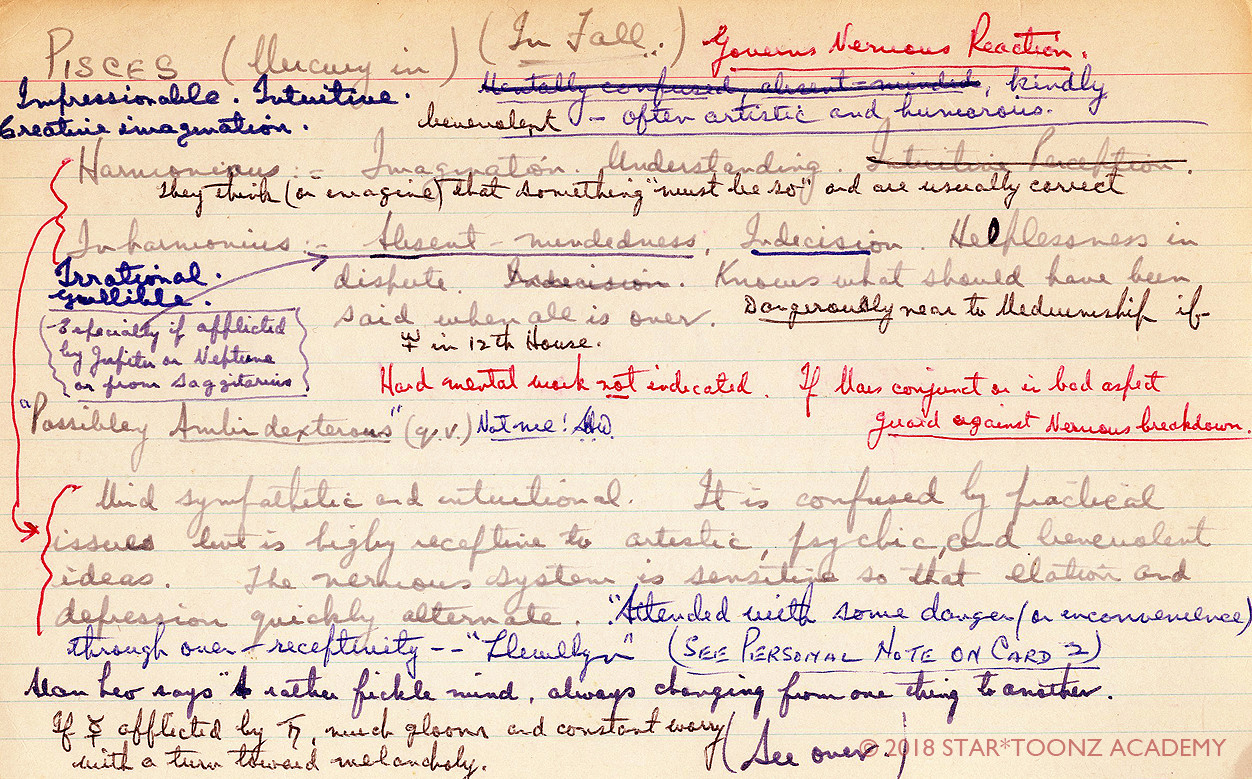 PISCES (Mercury in) (In Fall..) Governs Nervous Reaction.
Impressionable. Intuitive. Mentally confused, absent-minded, kindly
Creative imagination. benevolent - often artistic and humorous.
Harmonious :- Imagination. Understanding. Intuitive Perception.
They think (or imagine) that something "must be so" and are usually correct
Inharmonius :- Absent-mindedness, Indecision. Helplessness in
Irrational. dispute. Indecision. Knows what should have been
Gullible. said when all is over. Dangerously near to Mediumship if
☿ in 12th House.
(-Especially if afflicted
by Jupiter or Neptune
or from Saggitarius)
Hard mental work not indicated. If Mars conjunct or in bad aspect
guard against Nervous breakdown.
"Possibley Ambidexterous" (q.v.) Not me!
Mind sympathetic and intuitional. It is confused by practical
issues but is highy receptive to artistic, psychic, and benevolent
ideas. The nervous system is sensitive so that elation and
depression quickly alternate. "Attended with some danger (or inconvenience)
through over-receptivity -- "Llewellyn" (SEE PERSONAL NOTE ON CARD 2)
Alan Leo says "A rather fickle mind, always changing from one thing to another.
If ☿ afflicted by ♄, much gloom and constant worry
with a turn toward melancholy. (See over)
© 2018 STAR*TOONZ ACADEMY